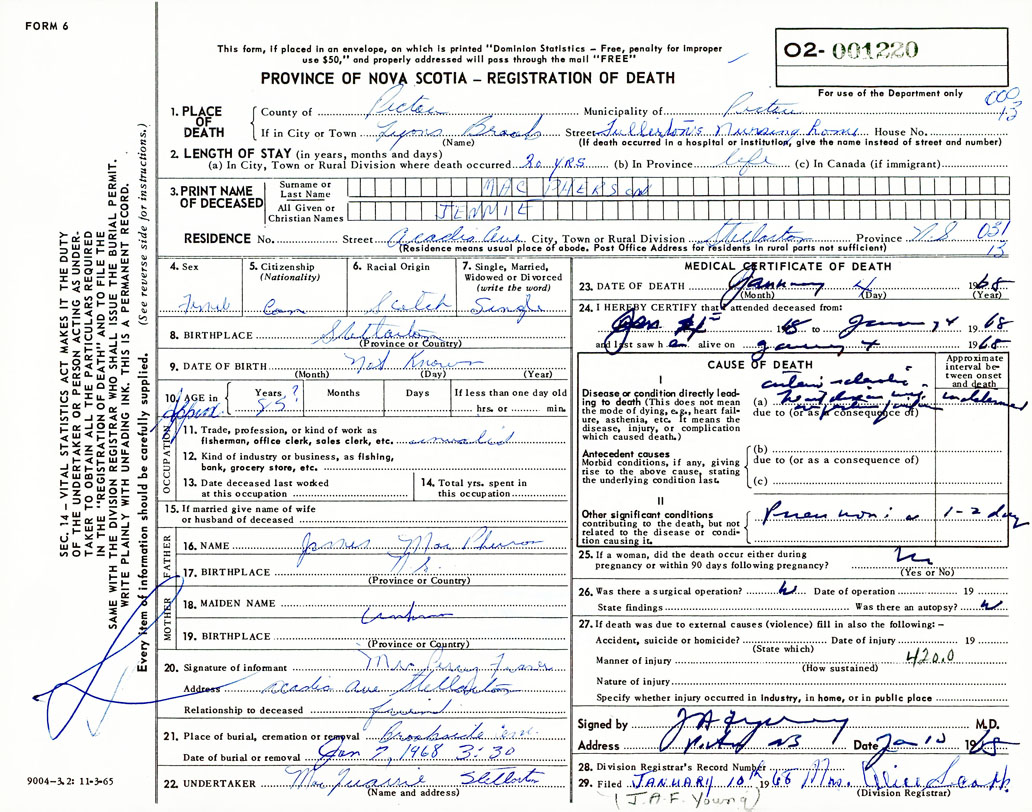 FORM 6
This form, if placed in an envelope, on which is printed "Dominion Statistics – Free, penalty for improper
use $50," and properly addressed will pass through the mail "FREE"
PROVINCE OF NOVA SCOTIA – REGISTRATION OF DEATH
O2- 001220
For use of the Department only
1. PLACE OF DEATH
County of Pictou Municipality of Pictou
If in City or Town Lyons Brook Street Fullerton's Nursing Home House No.
(Name) (If death occurred in a hospital or institution, give the name instead of street and number)
2. LENGTH OF STAY (in years, months and days)
(a) In City, Town or Rural Division where death occurred 20 YRS (b) In Province life (c) In Canada (if immigrant)
3. PRINT NAME OF DECEASED
Surname or Last Name MAC PHERSON
All Given or Christian Names JENNIE
RESIDENCE No. Street Acadia Ave City, Town or Rural Division Stellarton Province NS 031
13
(Residence means usual place of abode. Post Office Address for residents in rural parts not sufficient)
4. Sex
5. Citizenship (Nationality) Can
6. Racial Origin Scotch
7. Single, Married, Widowed or Divorced (write the word) Single
8. BIRTHPLACE Stellarton
(Province or Country)
9. DATE OF BIRTH Not Known
(Month) (Day) (Year)
10. AGE in Years Months Days If less than one day old
approx 85 ? hrs. or min.
OCCUPATION
11. Trade, profession, or kind of work as
fisherman, office clerk, sales clerk, etc. invalid
12. Kind of industry or business, as fishing,
bank, grocery store, etc.
13. Date deceased last worked
at this occupation
14. Total yrs. spent in
this occupation
15. If married give name of wife
or husband of deceased
FATHER
16. NAME James MacPherson
17. BIRTHPLACE N.S.
(Province or Country)
MOTHER
18. MAIDEN NAME unknown
19. BIRTHPLACE
(Province or Country)
20. Signature of informant Mrs Percy Fraser
Address Acadia Ave Stellarton
Relationship to deceased friend
21. Place of burial, cremation or removal Brookside Cem.
Date of burial or removal Jan 7, 1968 3:30
22. UNDERTAKER Stellarton
(Name and address)
MEDICAL CERTIFICATE OF DEATH
23. DATE OF DEATH January 4 1968
(Month) (Day) (Year)
24. I HEREBY CERTIFY that I attended deceased from:
Jan 1968 to January 4 1968
and last saw h alive on January 4 1968
CAUSE OF DEATH
Approximate interval between onset and death
I
Disease or condition directly leading to death (This does not mean the mode of dying, e.g., heart failure, asthenia, etc. It means the disease, injury, or complication which caused death.)
(a) heart
due to (or as a consequence of)
Antecedent causes
Morbid conditions, if any, giving rise to the above cause, stating the underlying condition last.
(b)
due to (or as a consequence of)
(c)
II
Other significant conditions
contributing to the death, but not related to the disease or condition causing it.
Pneumonia 1-2 day
25. If a woman, did the death occur either during
pregnancy or within 90 days following pregnancy?
(Yes or No)
26. Was there a surgical operation? Date of operation 19
State findings Was there an autopsy?
27. If death was due to external causes (violence) fill in also the following: –
Accident, suicide or homicide? Date of injury 19
(State which)
Manner of injury 420.0
(How sustained)
Nature of injury
Specify whether injury occurred in industry, in home, or in public place
Signed by M.D.
Address Date Jan 10 1968
28. Division Registrar's Record Number
29. Filed JANUARY 10th 1968 Mrs.
(Division Registrar)
(J.A.F. Young)
SEC. 14 – VITAL STATISTICS ACT MAKES IT THE DUTY
OF THE UNDERTAKER OR PERSON ACTING AS UNDER-
TAKER TO OBTAIN ALL THE PARTICULARS REQUIRED
IN THE "REGISTRATION OF DEATH" AND TO FILE THE
SAME WITH THE DIVISION REGISTRAR WHO SHALL ISSUE THE BURIAL PERMIT.
WRITE PLAINLY WITH UNFADING INK. THIS IS A PERMANENT RECORD.
Every item of information should be carefully supplied. (See reverse side for instructions.)
9004–3.2: 11-3-65